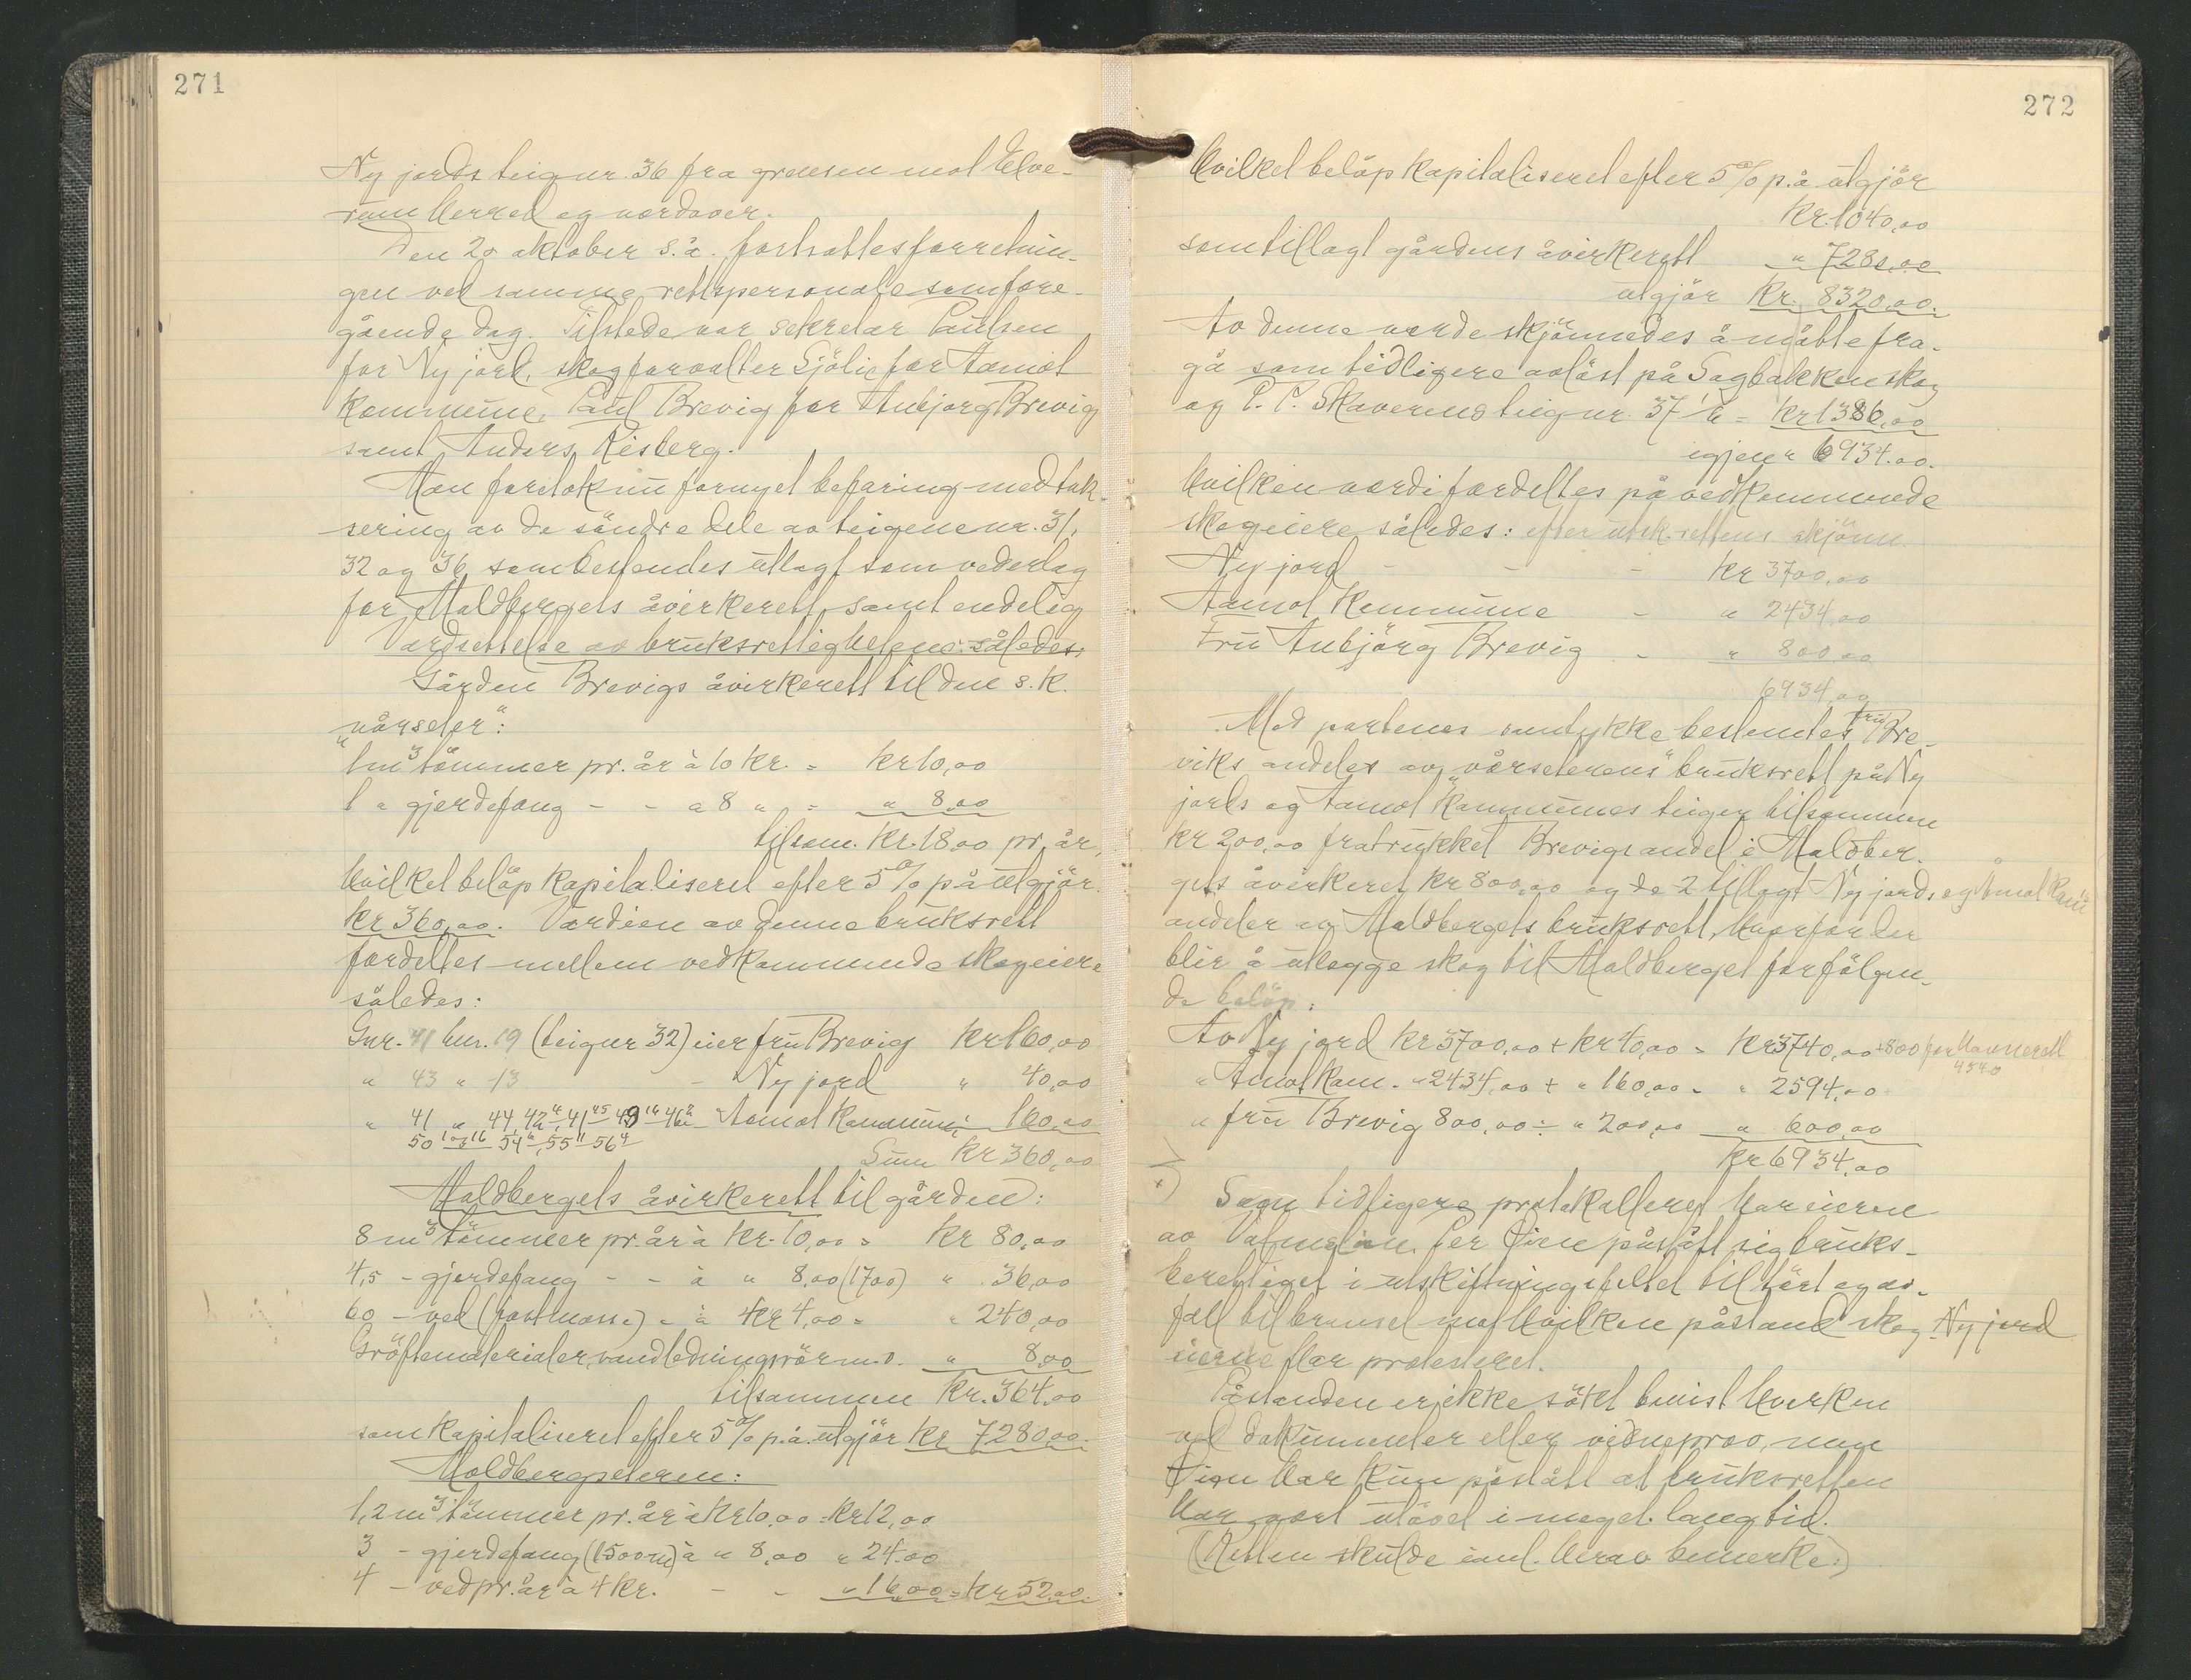 271
Ny jords teig nr. 36 fra grensen mot Elve-
rum herred og nordover.
Den 20 oktober s.å. fortsattes forretnin-
gen ved samme rettspersonale som fore-
gående dag. Tilstede var sekretær Paulsen
for Ny jord, skogforvalter Sjölie for Aamot
kommune, Paul Brevig for Anbjørg Brevig
samt Anders Risberg.
Man foretok nu fornyet befaring med tak-
sering av de søndre dele av teigene nr. 31,
32 og 36 som bestemtes utlagt som vederlag
for Maldbergets åvirkerett, samt endelig
Værdsettelse av bruksrettighetene således:
Gården Brevigs åvirkerett til den s.k.
"vårseter":
1 m³ tömmer pr. år à 10 kr. = kr 10,00
1 " gjerdefang - - a 8 " = " 8,00
tilsam. kr. 18.00 pr. år,
hvilket beløp kapitaliseret efter 5 % på utgjør
kr 360,00. Værdien av denne bruksrett
fordeltes mellem vedkommende skogeiere
således:
Gnr. 41 bnr. 19 (teig nr 32) eier fru Brevig kr 160,00
" 43 " 13 - Ny jord " 40,00
" 41 " 44, 42 4, 41 45 49 16 46 2 Aamot kommune " 160,00
50 1 og 16 54 6, 55 11 56 4
Sum kr 360,00
Maldbergets åvirkerett til gården:
8 m³ tömmer pr. år à kr. 10,00 = kr 80,00
4,5 - gjerdefang - - à " 8,00 (1700) " 36,00
60 - ved (fastmasse) - à kr 4,00 = " 240,00
Gröftematerialer, vandledningsrör m.v. " 8,00
tilsammen kr. 364,00
som kapitaliseret efter 5 % p.å. utgjør kr 7280,00.
Maldbergseteren:
1,2 m³ tömmer pr. år à kr 10,00 = kr 12,00
3 - gjerdefang (1500 m) à " 8,00 " 24.00
4 - ved pr. år à 4 kr. - - " 16,00 = kr 52.00.
272
Hvilket beløp kapitaliseret efter 5 % p.å. utgjør
kr. 1040,00
som tillagt gårdens åvirkerett " 7280,00
utgjør kr. 8320,00.
Av denne verde skjønnedes å måtte fra-
gå som tidligere avløst på Sagbakken skog
og P. P. Skaverens teig nr. 37 = kr 1386,00
igjen " 6934.00.
Hvilken verdi fordeltes på vedkommende
skogeiere således: efter utsk.rettens skjønn
Ny jord - - - kr 3700,00
Aamot kommune - " 2434,00
Fru Anbjörg Brevig - " 800,00
6934,00
Med partenes samtykke bestemtes fru Bre-
viks andeler av "vårseterens" bruksrett på Ny
jords og Aamot kommunes teiger tilsammen
kr 200,00 fratrukket Brevigs andel i Maldber-
gets åvirkerett kr 800,00 og de 2 tillagt Ny jords og Åmot kom.
andeler av Maldbergets bruksrett, hvorfor der
blir å utlegge skog til Maldberget for følgen-
de beløp:
Av Ny jord kr 3700,00 + kr 40,00 = kr 3740,00 + 800 for havnerett
4540
" Åmot kom. " 2434,00 + " 160,00 = " 2594,00
" fru Brevig 800,00 ÷ " 200,00 " 600,00
kr 6934,00
+) Som tidligere protokolleret har eieren
av Per Øien påstått sig bruks-
berettiget i utskiftningsfeltet til tört og av-
fall til brensel mot hvilken påstand skog Ny jord
eierne har protesteret.
Påstanden er ikke søkt bevist hverken
ved dokumenter eller vidneprov, men
Øien har kun påstått at bruksretten
har vært utövet i meget lang tid.
(Retten skulde hervo bemerke:)